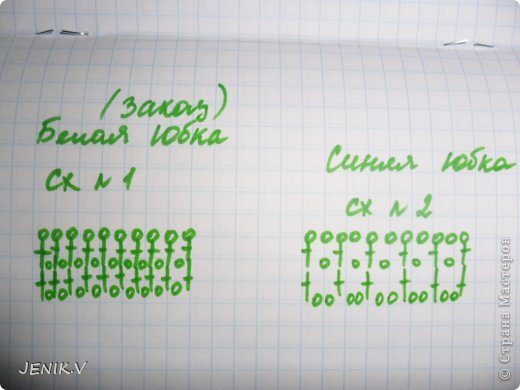 (Заказ)
Белая юбка
сх № 1
Синяя юбка
сх № 2
JENIK.V
© Страна Мастеров